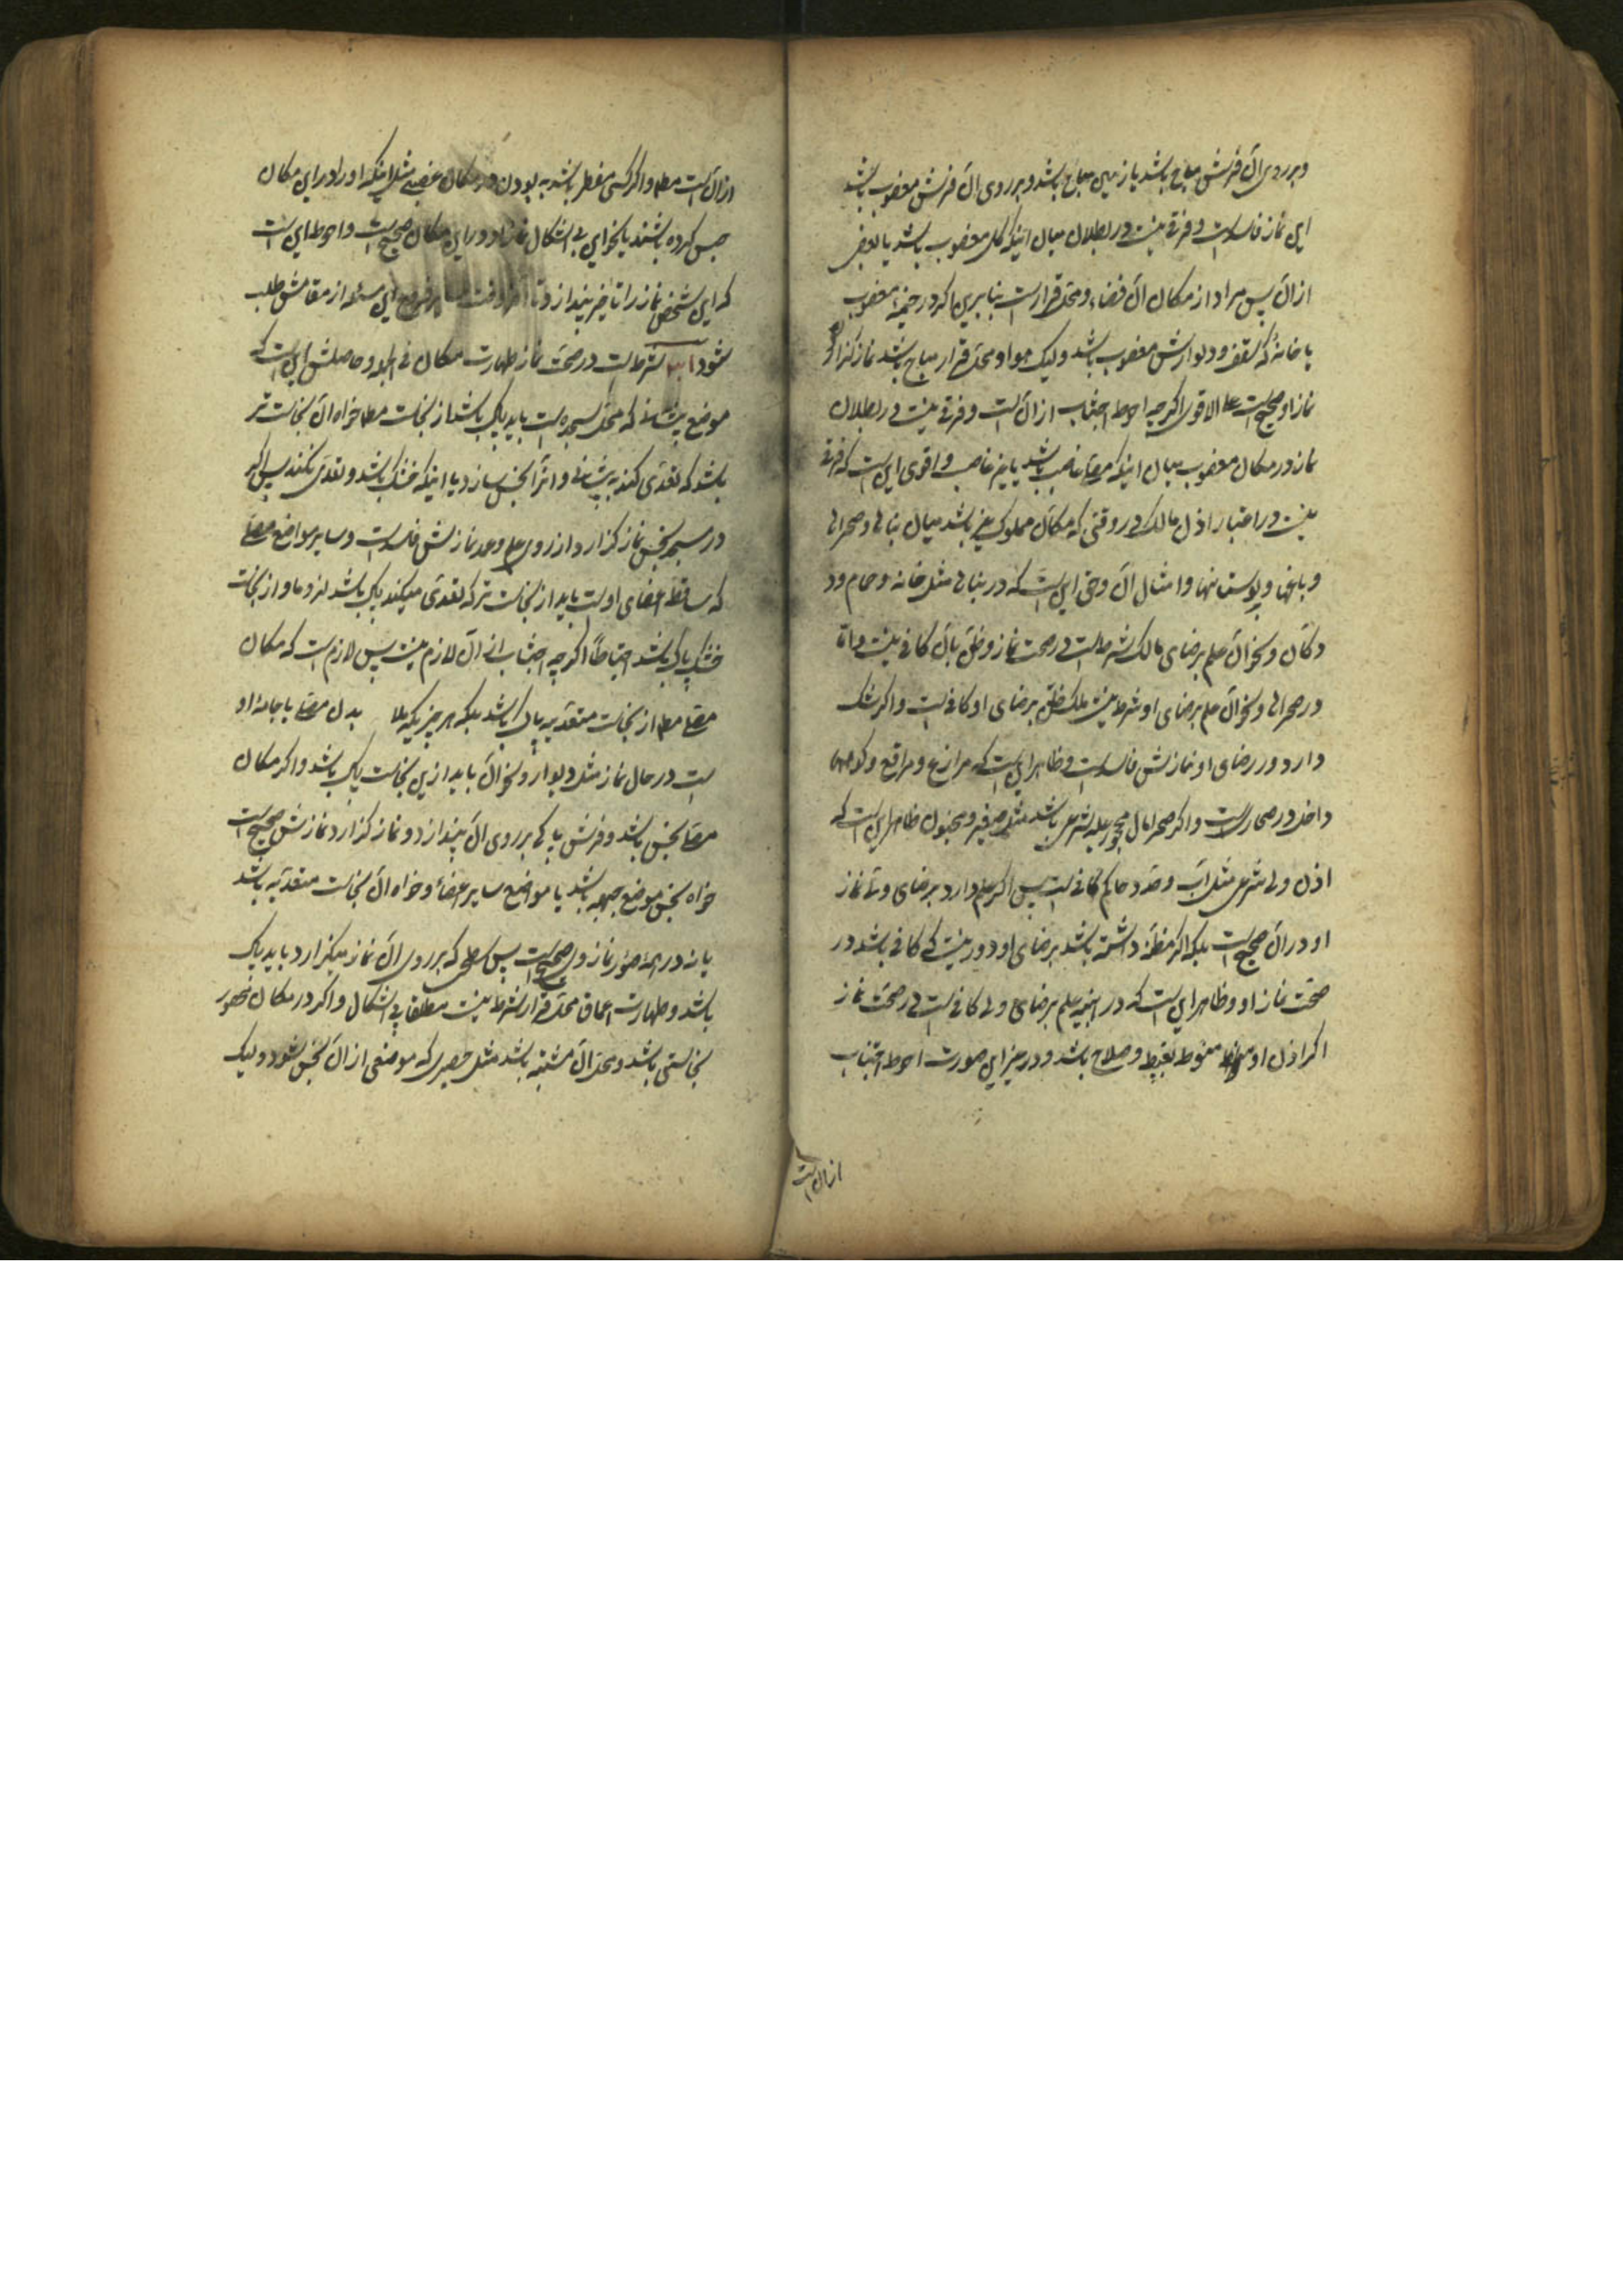 وبر روی آن فرش مباح باشد یا زمین مباح باشد و بر روی آن فرش مغصوب باشد
این نماز فاسد است و فرقی نیست در بطلان میان اینکه کل مغصوب باشد یا بعض
از آن پس مراد از مکان آن فضاء و محل قرار است بنابرین اگر در خیمهٔ مغصوب
یا خانهٔ که سقف و دیوارش مغصوب باشد ولیک هوا و محل قرار مباح باشد نماز گزارد
نماز او صحیح است علی الاقوی اگرچه احوط اجتناب از آن است و فرقی نیست در بطلان
نماز در مکان مغصوب میان اینکه مصلی غاصب باشد یا غیر غاصب و اقوی این است که فرقی
نیست در اعتبار اذن مالک در وقتی که مکان مملوک غیر باشد میان بنائی و صحرائی
و باغها و بوستانها و امثال آن و حق این است که در بنائی مثل خانه و حمام و
دکان و نحو آن علم برضای مالک شرط است در صحت نماز و ظن بآن کافی نیست و اما
در صحرائی و نحو آن علم برضای او شرط نیست بلکه ظن برضای او کافی است و اگر شک
دارد در رضای او نمازش فاسد است و ظاهر این است که مزارع و مراقع و کوهها
داخل در صحاری است و اگر صحرا مال محجور علیه شرعی باشد مثل صغیر و مجنون ظاهر این است که
اذن ولی شرعی مثل اب و جد و حاکم کافی است پس اگر علم دارد برضای ولی نماز
او در آن صحیح است بلکه اگر مظنه داشته باشد برضای او دور نیست که کافی باشد در
صحت نماز او و ظاهر این است که در ابنیه علم برضای ولی کافی است در صحت نماز
اگر اذن او منوط بغبطه و صلاح باشد و در غیر این صورت احوط اجتناب
از آن است
از آن است مط و اگر کسی مضطر باشد به بودن در مکان غصبی مثل اینکه او را در این مکان
حبس کرده باشند یا نحو این بی اشکال نماز او در این مکان صحیح است و احوط این است
که این شخص نماز را تأخیر بیندازد تا آخر وقت این مسئله از مقامش طلب
شود شرط است در صحت نماز طهارت مکان فی الجمله و حاصلش این است که
موضع پیشانی که محل سجده است باید پاک باشد از نجاست مط خواه آن نجاست تر
باشد که تعدی کند به پیشانی و انرا نجس سازد یا اینکه خشک باشد و تعدی نکند پس اگر
در مسجد نجس نماز گزارد از روی علم و عمد نمازش فاسد است و سایر مواضع مصلی
که مساقط اعضای او است باید از نجاست تر که تعدی میکند پاک باشد لزوما و از نجاست
خشک پاک باشد احتیاطاً اگرچه اجتناب از آن لازم نیست پس لازم است که مکان
مصلی مط از نجاست متعدیه پاک باشد بلکه هر چیزیکه بلا بدن مصلی یا جامهٔ او
است در حال نماز مثل دیوار و نحو آن باید ازین نجاست پاک باشد و اگر مکان
مصلی نجس باشد و فرش پاکی بر روی آن بیندازد و نماز گزارد نمازش صحیح است
خواه نجس موضع جبهه باشد یا مواضع سایر اعضاء و خواه آن نجاست متعدیه باشد
یا نه در همهٔ صور نماز وی صحیح است پس سطحی که بر روی آن نماز میگزارد باید پاک
باشد و طهارت اعماق محل قرار شرط نیست مطلقا بی اشکال و اگر در مکان محصور
نجاستی باشد و محل آن مشتبه باشد مثل حصیری که موضعی از آن نجس شود و لیک